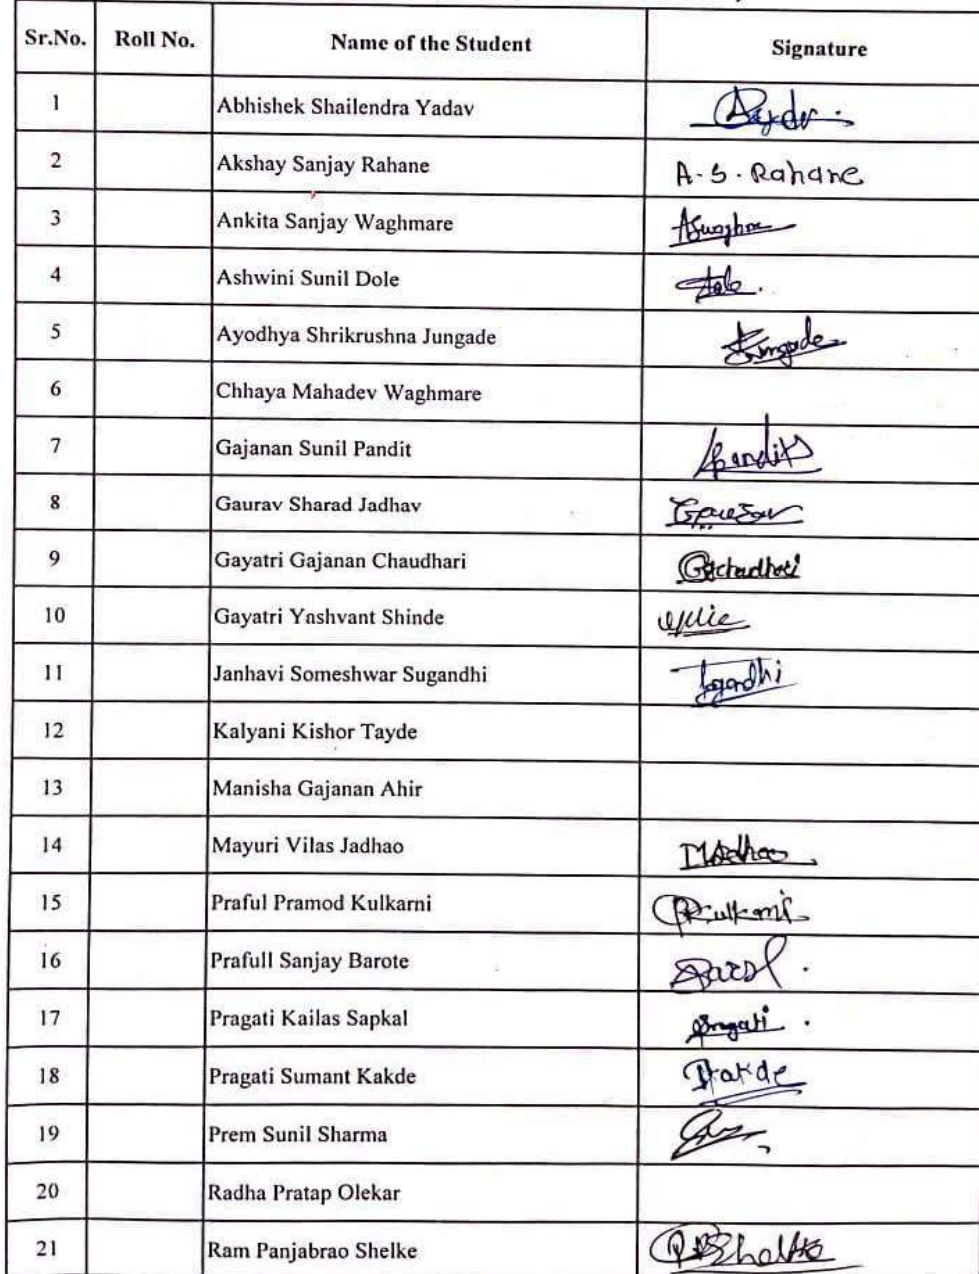 Sr.No. Roll No. Name of the Student Signature
1 Abhishek Shailendra Yadav
2 Akshay Sanjay Rahane A. S. Rahane
3 Ankita Sanjay Waghmare
4 Ashwini Sunil Dole
5 Ayodhya Shrikrushna Jungade Jungade
6 Chhaya Mahadev Waghmare
7 Gajanan Sunil Pandit
8 Gaurav Sharad Jadhav
9 Gayatri Gajanan Chaudhari
10 Gayatri Yashvant Shinde
11 Janhavi Someshwar Sugandhi
12 Kalyani Kishor Tayde
13 Manisha Gajanan Ahir
14 Mayuri Vilas Jadhao
15 Praful Pramod Kulkarni
16 Prafull Sanjay Barote
17 Pragati Kailas Sapkal Pragati
18 Pragati Sumant Kakde
19 Prem Sunil Sharma
20 Radha Pratap Olekar
21 Ram Panjabrao Shelke